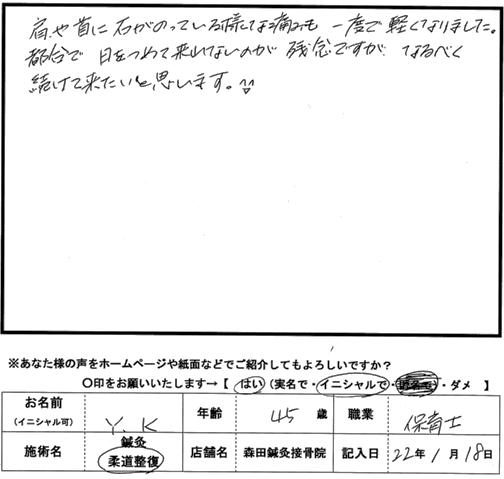 肩や首に石がのっている様な痛みも 一度で軽くなりました。
都合で 日をつめて来れないのが 残念ですが なるべく
続けて来たいと思います。
※あなた様の声をホームページや紙面などでご紹介してもよろしいですか？
〇印をお願いいたします→【 はい （実名で・イニシャルで・匿名で）・ダメ 】
お名前（イニシャル可） Y.K 年齢 45 歳 職業 保育士
施術名 鍼灸 柔道整復 店舗名 森田鍼灸接骨院 記入日 22年1月18日